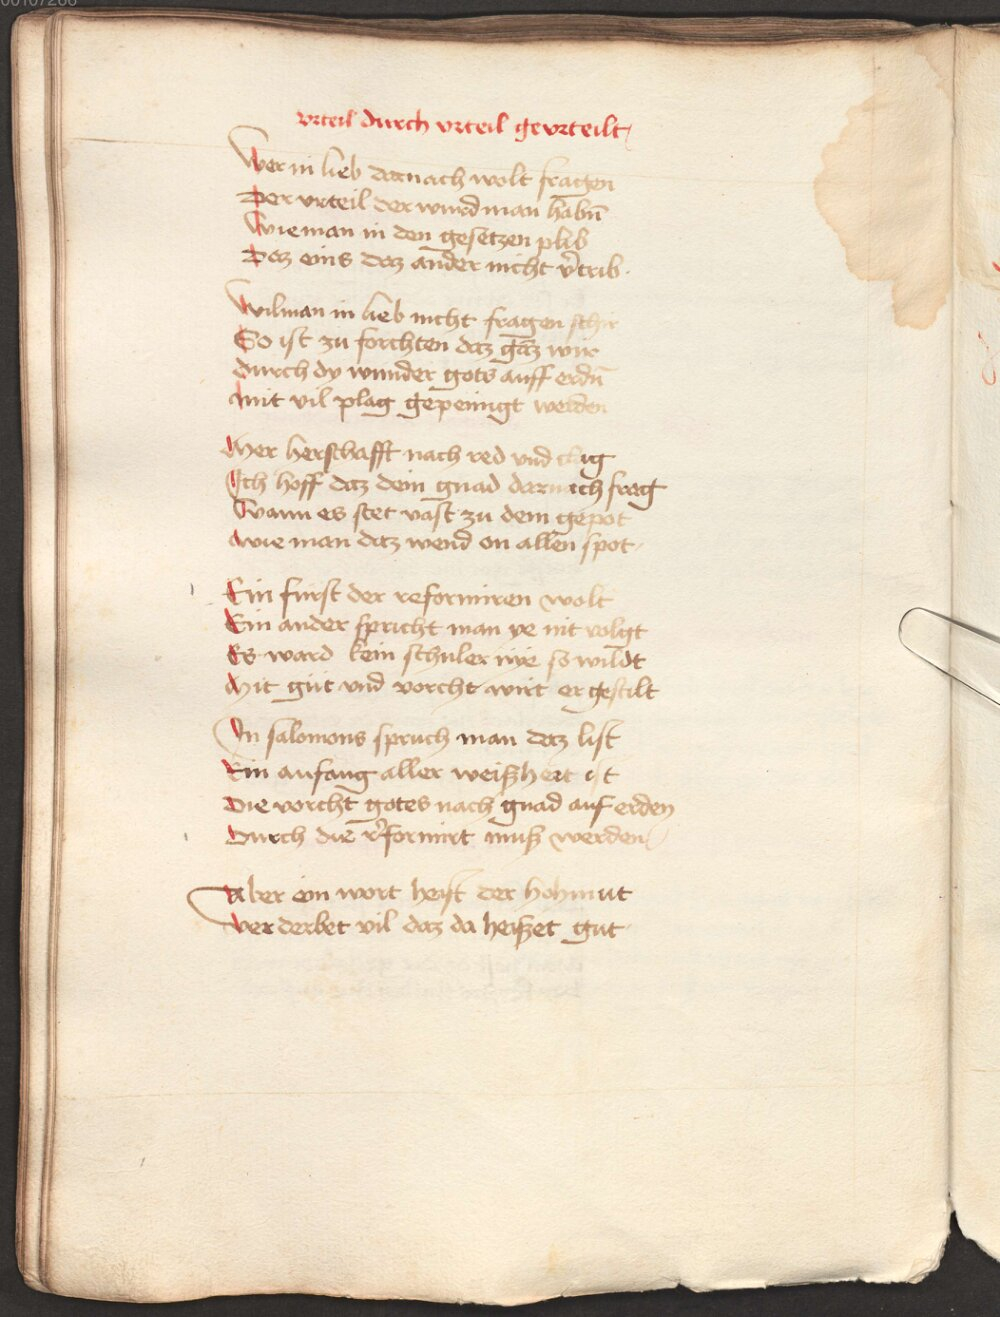 00107266
vrteil durch vrteil gevrteilt
Wer in lieb darnach wolt fragen
Der vrteil der wurd man habn̄
Wie man in den gesetzen plib
Daz eins daz ander nicht v̉trib
Wil man in lieb nicht fragen schir
So ist zu forchten daz gāz wir
Durch dy wunder gots auff erdn̄
Mit vil plag gepeinigt werden
Her herschafft nach red vnd clag
Ich hoff daz dein gnad darnach frag
Wann es stet vast zu dem gepot
Wie man daz wend on allen spot
Ein furst der reformiren wolt
Ein ander spricht man ye nit volgt
Es ward kein schuler nye so wildt
Mit gut vnd vorcht wirt er gestilt
In salomons spruch man daz list
Ein anfang aller weißheit ist
Die vorcht gotes nach gnad auf erden
Durch die r̉formirt muß werden
Aber ein wort heist der hohmut
Verderbet vil daz da heißet gut